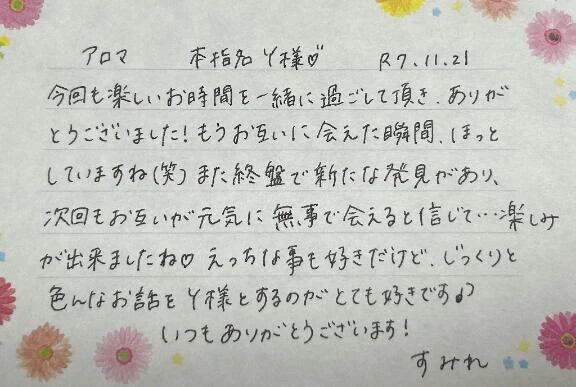 アロマ 本指名 Y様♡ R7.11.21
今回も楽しいお時間を一緒に過ごして頂き、ありが
とうございました!もうお互いに会えた瞬間、ほっと
していますね(笑)また終盤で新たな発見があり、
次回もお互いが元気に無事で会えると信じて…楽しみ
が出来ましたね♡えっちな事も好きだけど、じっくりと
色んなお話をY様とするのがとても好きです♪
いつもありがとうございます!
すみれ